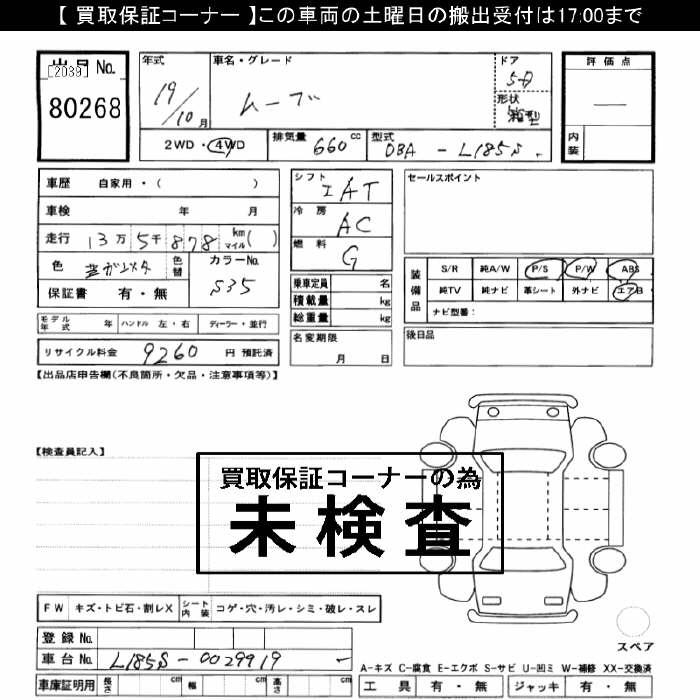 【 買取保証コーナー 】この車両の土曜日の搬出受付は17:00まで
出品 No.
[2039]
80268
年式
19/10月
車名・グレード
ムーブ
ドア
5D
形状
箱型
評価点
—
内装
2WD・4WD
排気量 660cc
型式 DBA - L185S
車歴 自家用・( )
車検 年 月
走行 13万5千878 km マイル( )
色
色替
カラーNo. S35
保証書 有・無
シフト IAT
冷房 AC
燃料 G
セールスポイント
乗車定員 名
積載量 kg
総重量 kg
装備品
S/R 純A/W P/S P/W ABS
純TV 純ナビ 革シート 外ナビ エアB
ナビ型番:
モデル年式 年 ハンドル 左・右 ディーラー・並行
リサイクル料金 9260 円 預託済
名変期限
月 日
後日品
【出品店申告欄(不良箇所・欠品・注意事項等)】
【検査員記入】
買取保証コーナーの為
未検査
FW キズ・トビ石・割レX シート内装 コゲ・穴・汚レ・シミ・破レ・スレ
スペア
登録No.
車台No. L185S-0029919
A-キズ C-腐食 E-エクボ S-サビ U-凹ミ W-補修 XX-交換済
車庫証明用 長さ cm 幅 cm 高さ cm
工具 有・無 ジャッキ 有・無